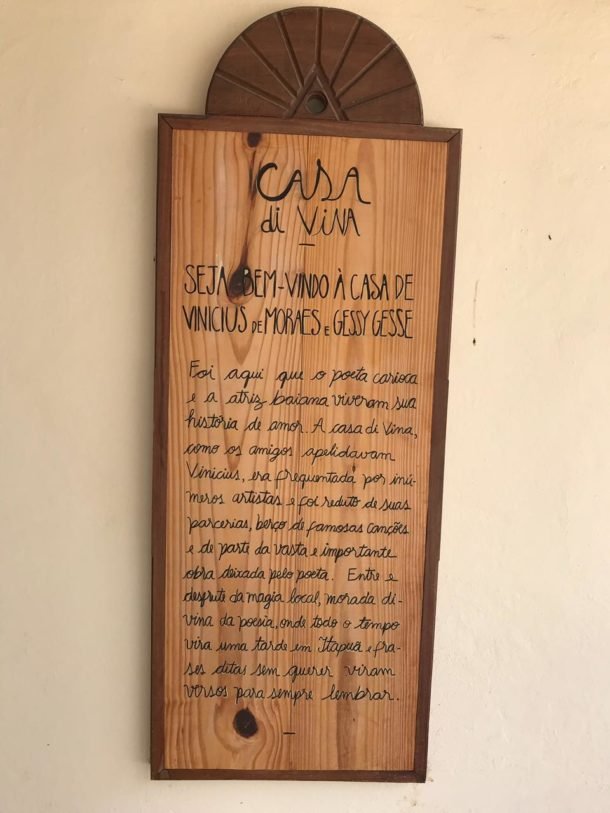 CASA
di ViNA
SEJA BEM-VINDO À CASA DE
VINICIUS DE MORAES E GESSY GESSE
Foi aqui que o poeta carioca
e a atriz baiana viveram sua
história de amor. A casa di Vina,
como os amigos apelidavam
Vinicius, era frequentada por inú-
meros artistas e foi reduto de suas
parcerias, berço de famosas canções
e de parte da vasta e importante
obra deixada pelo poeta. Entre e
desfrute da magia local, morada di-
vina da poesia, onde todo o tempo
vira uma tarde em Itapuã e fra-
ses ditas sem querer viram
versos para sempre lembrar.